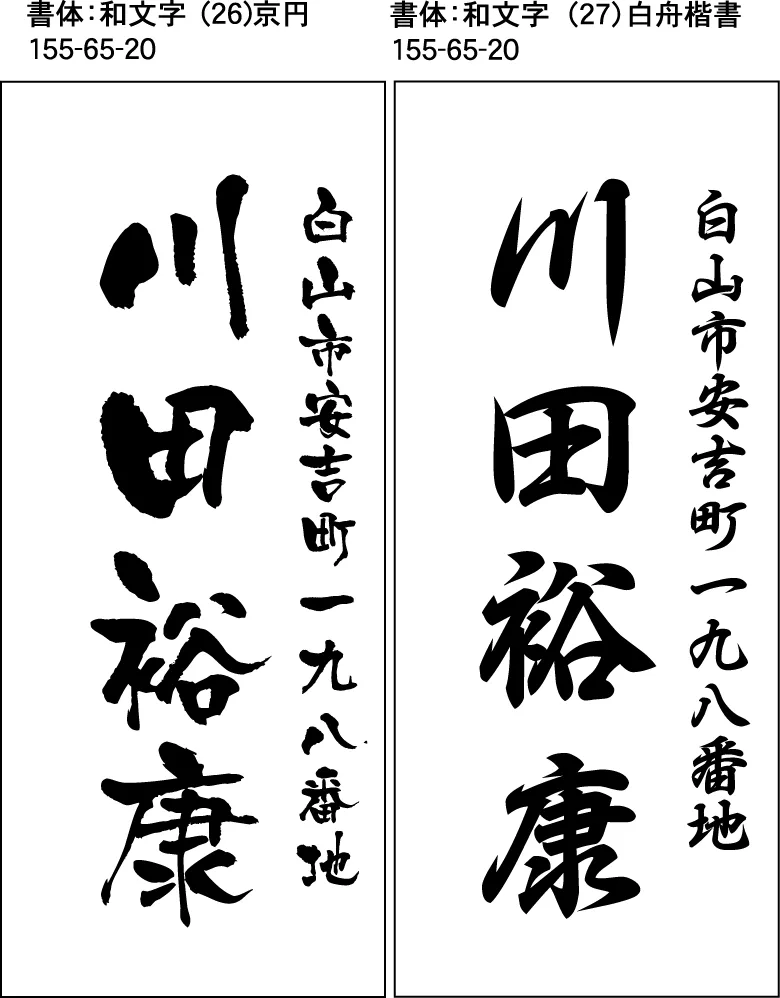 書体：和文字 (26)京円
155-65-20
白山市安吉町一九八番地
川田裕康
書体：和文字 (27)白舟楷書
155-65-20
白山市安吉町一九八番地
川田裕康